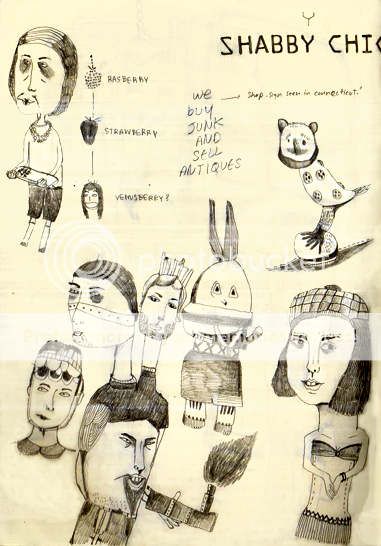 SHABBY CHIC
we → Shop sign seen in connecticut.'
buy
JUNK
AND
SELL
ANTIQUES
RASBERRY
STRAWBERRY
VENUSBERRY?
photobucket